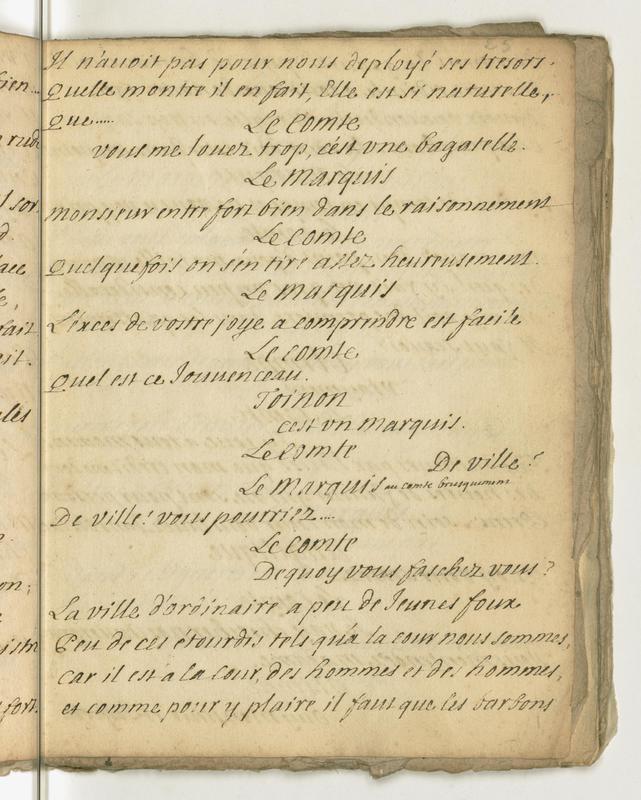 25
Il n'avoit pas pour nous deployé ses tresors.
Quelle montre il en fait, Elle est si naturelle,
Que.....
Le Comte
vous me louez trop, c'est une bagatelle.
Le Marquis
Monsieur entre fort bien dans le raisonnement
Le Comte
Quelquefois on s'en tire assez heureusement.
Le Marquis
L'exces de vostre joye a comprendre est facile
Le Comte
Quel est ce Jouvenceau.
Toinon
c'est un Marquis.
Le Comte
De ville?
Le Marquis au Comte brusquement
De ville! vous pourriez....
Le Comte
De quoy vous faschez vous?
La ville d'ordinaire a peu de Jeunes foux
Peu de ces étourdis tels qu'a la cour nous sommes,
Car il est a la Cour, des hommes et des hommes,
et comme pour y plaire il faut que les barbons